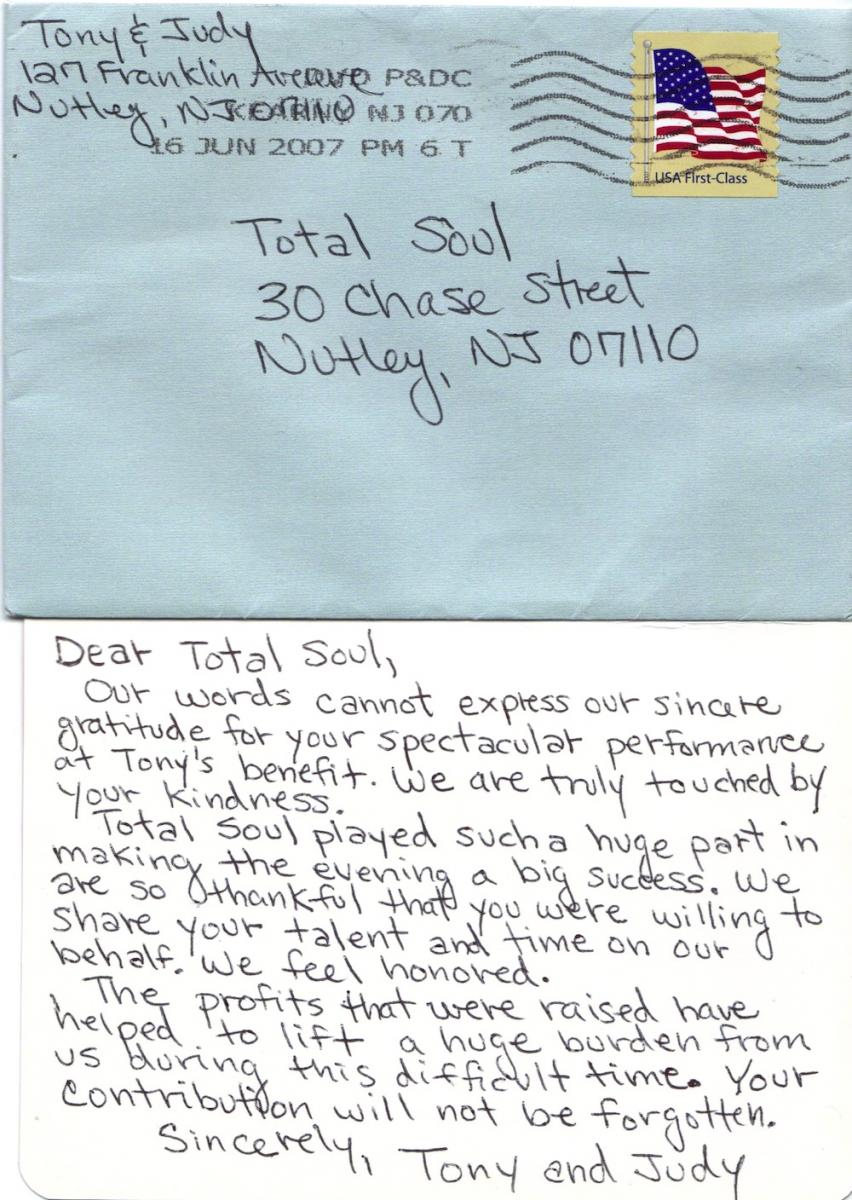 Tony & Judy
127 Franklin Avenue
Nutley, NJ 07110
P&DC
NJ 070
16 JUN 2007 PM 6 T
USA First-Class
Total Soul
30 Chase Street
Nutley, NJ 07110
Dear Total Soul,
Our words cannot express our sincere
gratitude for your spectacular performance
at Tony's benefit. We are truly touched by
your kindness.
Total Soul played such a huge part in
making the evening a big success. We
are so thankful that you were willing to
share your talent and time on our
behalf. We feel honored.
The profits that were raised have
helped to lift a huge burden from
us during this difficult time. Your
contribution will not be forgotten.
Sincerely, Tony and Judy